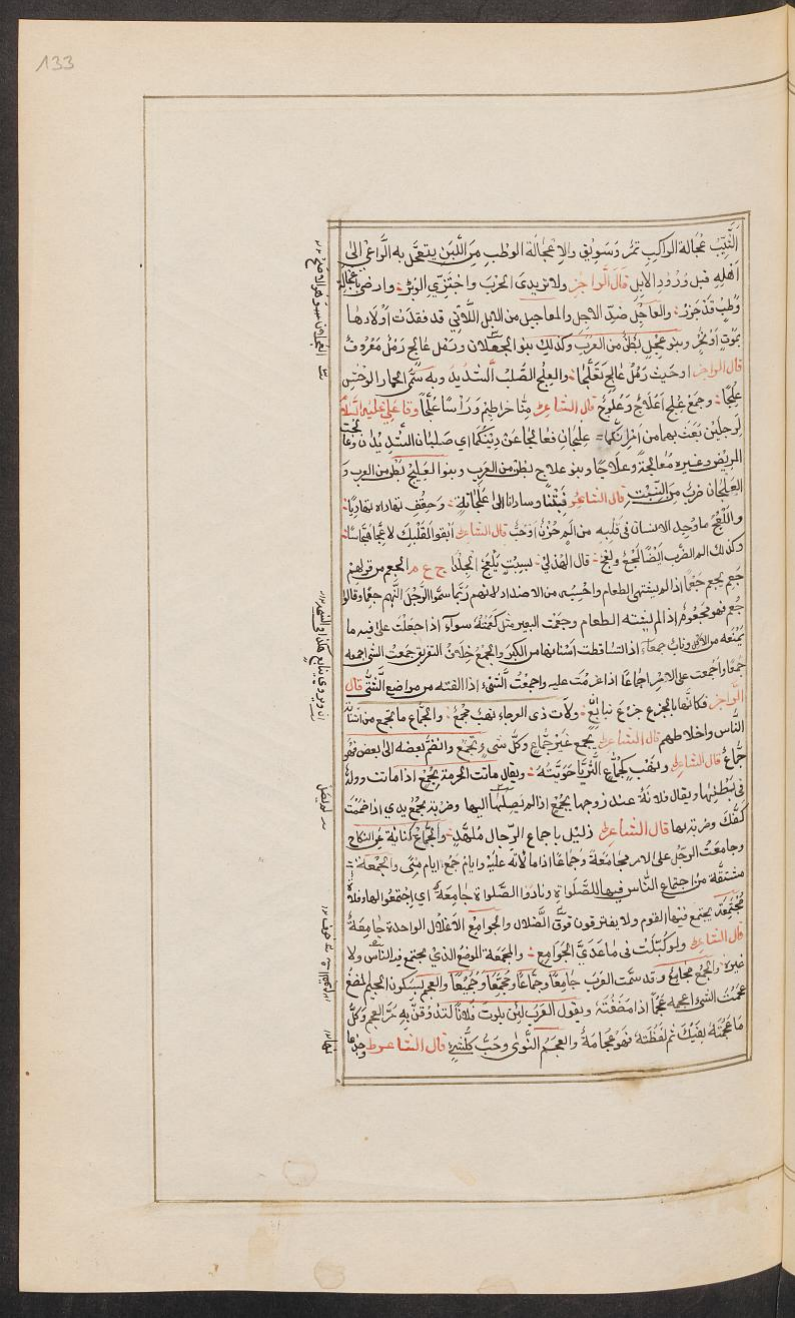 133
الثَّيِّب عُجالة الراكب تمر وَسَوِيق والاعجالة الوطب مِنَ اللّبن يتعجّل به الرّاعي الى
اَهْلِهِ قبل وُرُودِ الابل قال الراجز ولا تريدى الحرْبَ واجْتَزِّى الوبَرْ وارضى باعجالة
وَطْبٍ قَدْ حَزَرْ والعاجل ضدّ الاجل والمعاجيل من الابل اللّاتي قد فقدت اَوْلادها
بموْتٍ اَوْ نحرٍ وبنو عِجْلٍ بَطْنٌ من العرب وكذلك بنو العجلان ورَمْل عالج رَمْلٌ مَعْرُوفٌ
قال الراجز اوحَيث رَمْلُ عالجٍ تَعَلَّجَا والعِلْجُ الصُّلبُ الشديد وبه سمّى الحمار الوحش
عِلْجًا وجمْعُ عِلْجٍ اَعْلَاجٌ وعُلُوجٌ قال الشاعر منّا خراطيم وَرَاْسًا عَلَّجًا وقال على عليه السلام
لرجلَين بَعَثَ بهما من امْرٍ انّكما عِلْجَانِ فعالجا عَنْ دِينكما اى صلبان الشديدان وعالجت
المريض وغيره مُعالجةً وعِلَاجًا وبنو علاج بطن من العرب وبنو العُلَيج بَطْنٌ من العرب و
العَلَجان ضربٌ مِنَ النَّبْت قال الشاعر فَبِتْنَا وسادانا الى عَلَجَانةٍ وحِقْفٍ تهاداه تهاديًا
واللَّعْجُ ما وُجِد الانسان فى قلبه من المٍ حُزْنٍ اَوحُبٍّ قال الشاعر
وكذلك الم الضَّرب ايضًا لَعْجٌ قال الهذلى بِسِبْتٍ يَلْعَجُ الجِلْدَا ج ع م الجعم من قولهم
جَعِمَ يجعم جَعَمًا اذا لم يشتهى الطعام واحْسِبُه من الاضداد لانهم رُبّما سمَّوا الرَّجُلَ النَّهِمَ جعِمًا وقالوا
جُعِمَ فهو مجعُومٌ اذا لم يشته الطعام وجعَمْت البعير مثل كعَمْتُهُ سواء اذا جعلْت على فيه ما
يمْنَعه من الاكل ونابٌ جمعاء اذا تساقطت اسنانها من الكبر والجمْعُ خلَافُ التفريق جَمَعت الشئ اجمعه
جمعًا واَجْمعت على الامر اجماعًا اذا عزمْت عليه واجمَعْتُ الشئَ اذا القته من مواضع شتّى قال
الراجز فكانّها بالجزع جزع نبايعٍ وَاُولات ذى العرجاء نهبٌ مجمَعُ والجُمّاع ما تجمع من اشابة
النّاس واخلاطهم قال الشاعر مِن بَين جمعٍ غيْرِ جُمّاع وكلّ شئٍ تجمّع وانضمّ بعضه الى بعض فهُو
جُمّاعٌ قال الشاعر ونَهْبٍ كجُمّاعِ الثُّريّا حَوَيْتُهُ ويقال ماتت المرءة بجُمْعٍ اذا ماتت وولدها
فى بَطْنِهَا ويقال فلانةُ عند زوجها بجُمْعٍ اذا لم يصِلْ اليها وضربته بجُمْع يدى اذا ضممت
كفَّكَ وضربته بها قال الشاعر ذليلٍ باِجماع الرّجال مُلَهَّدِ والجِمَاعُ كناية عن النكاح
وجامَعْتُ الرّجُل على الامر مجَامعَةً وجِمَاعًا اذا مالأته علَيْهِ وايام جمعٍ ايام منًى والجمُعة
مشتقّة من اجتماع النّاس فيها للصّلواة ونادَوا الصَّلواةَ جامعةً اى اِجْتمعُوا لها وفلاة
مُجْمِعَةٌ يجتمع فيها القوم ولا يفترقون خوفَ الضَّلال والجوامِعُ الاغلال الواحدة جامِعَةٌ
قال الشاعر ولو كُبّلت فى ساعدَيَّ الجَوَامِعُ والمجْمَعَة الموضعُ الذى يجتمع فيه النّاسُ ولا
غيره والجمعُ مجامِعُ وقد سمَّت العَرَب جامِعًا وجمّاعًا ومُجمِّعًا وجُميْعًا والعجْم بسكون الجيم المضغ
عجَمْتُ الشئ اعجمه عَجْمًا اذا مَضغْتَهُ ويقول العرَب لئن بلوت فلانًا لتذوقنّ به مُرّ العجم وكلّ
مَا عجَمْتَهُ بفيك ثم لفَظتَه فهو عُجامةٌ والعَجَم النَّوى وحَبُّ كلّ شئٍ قال الشاعر
ويروى ينابع هكذا فى النسخة